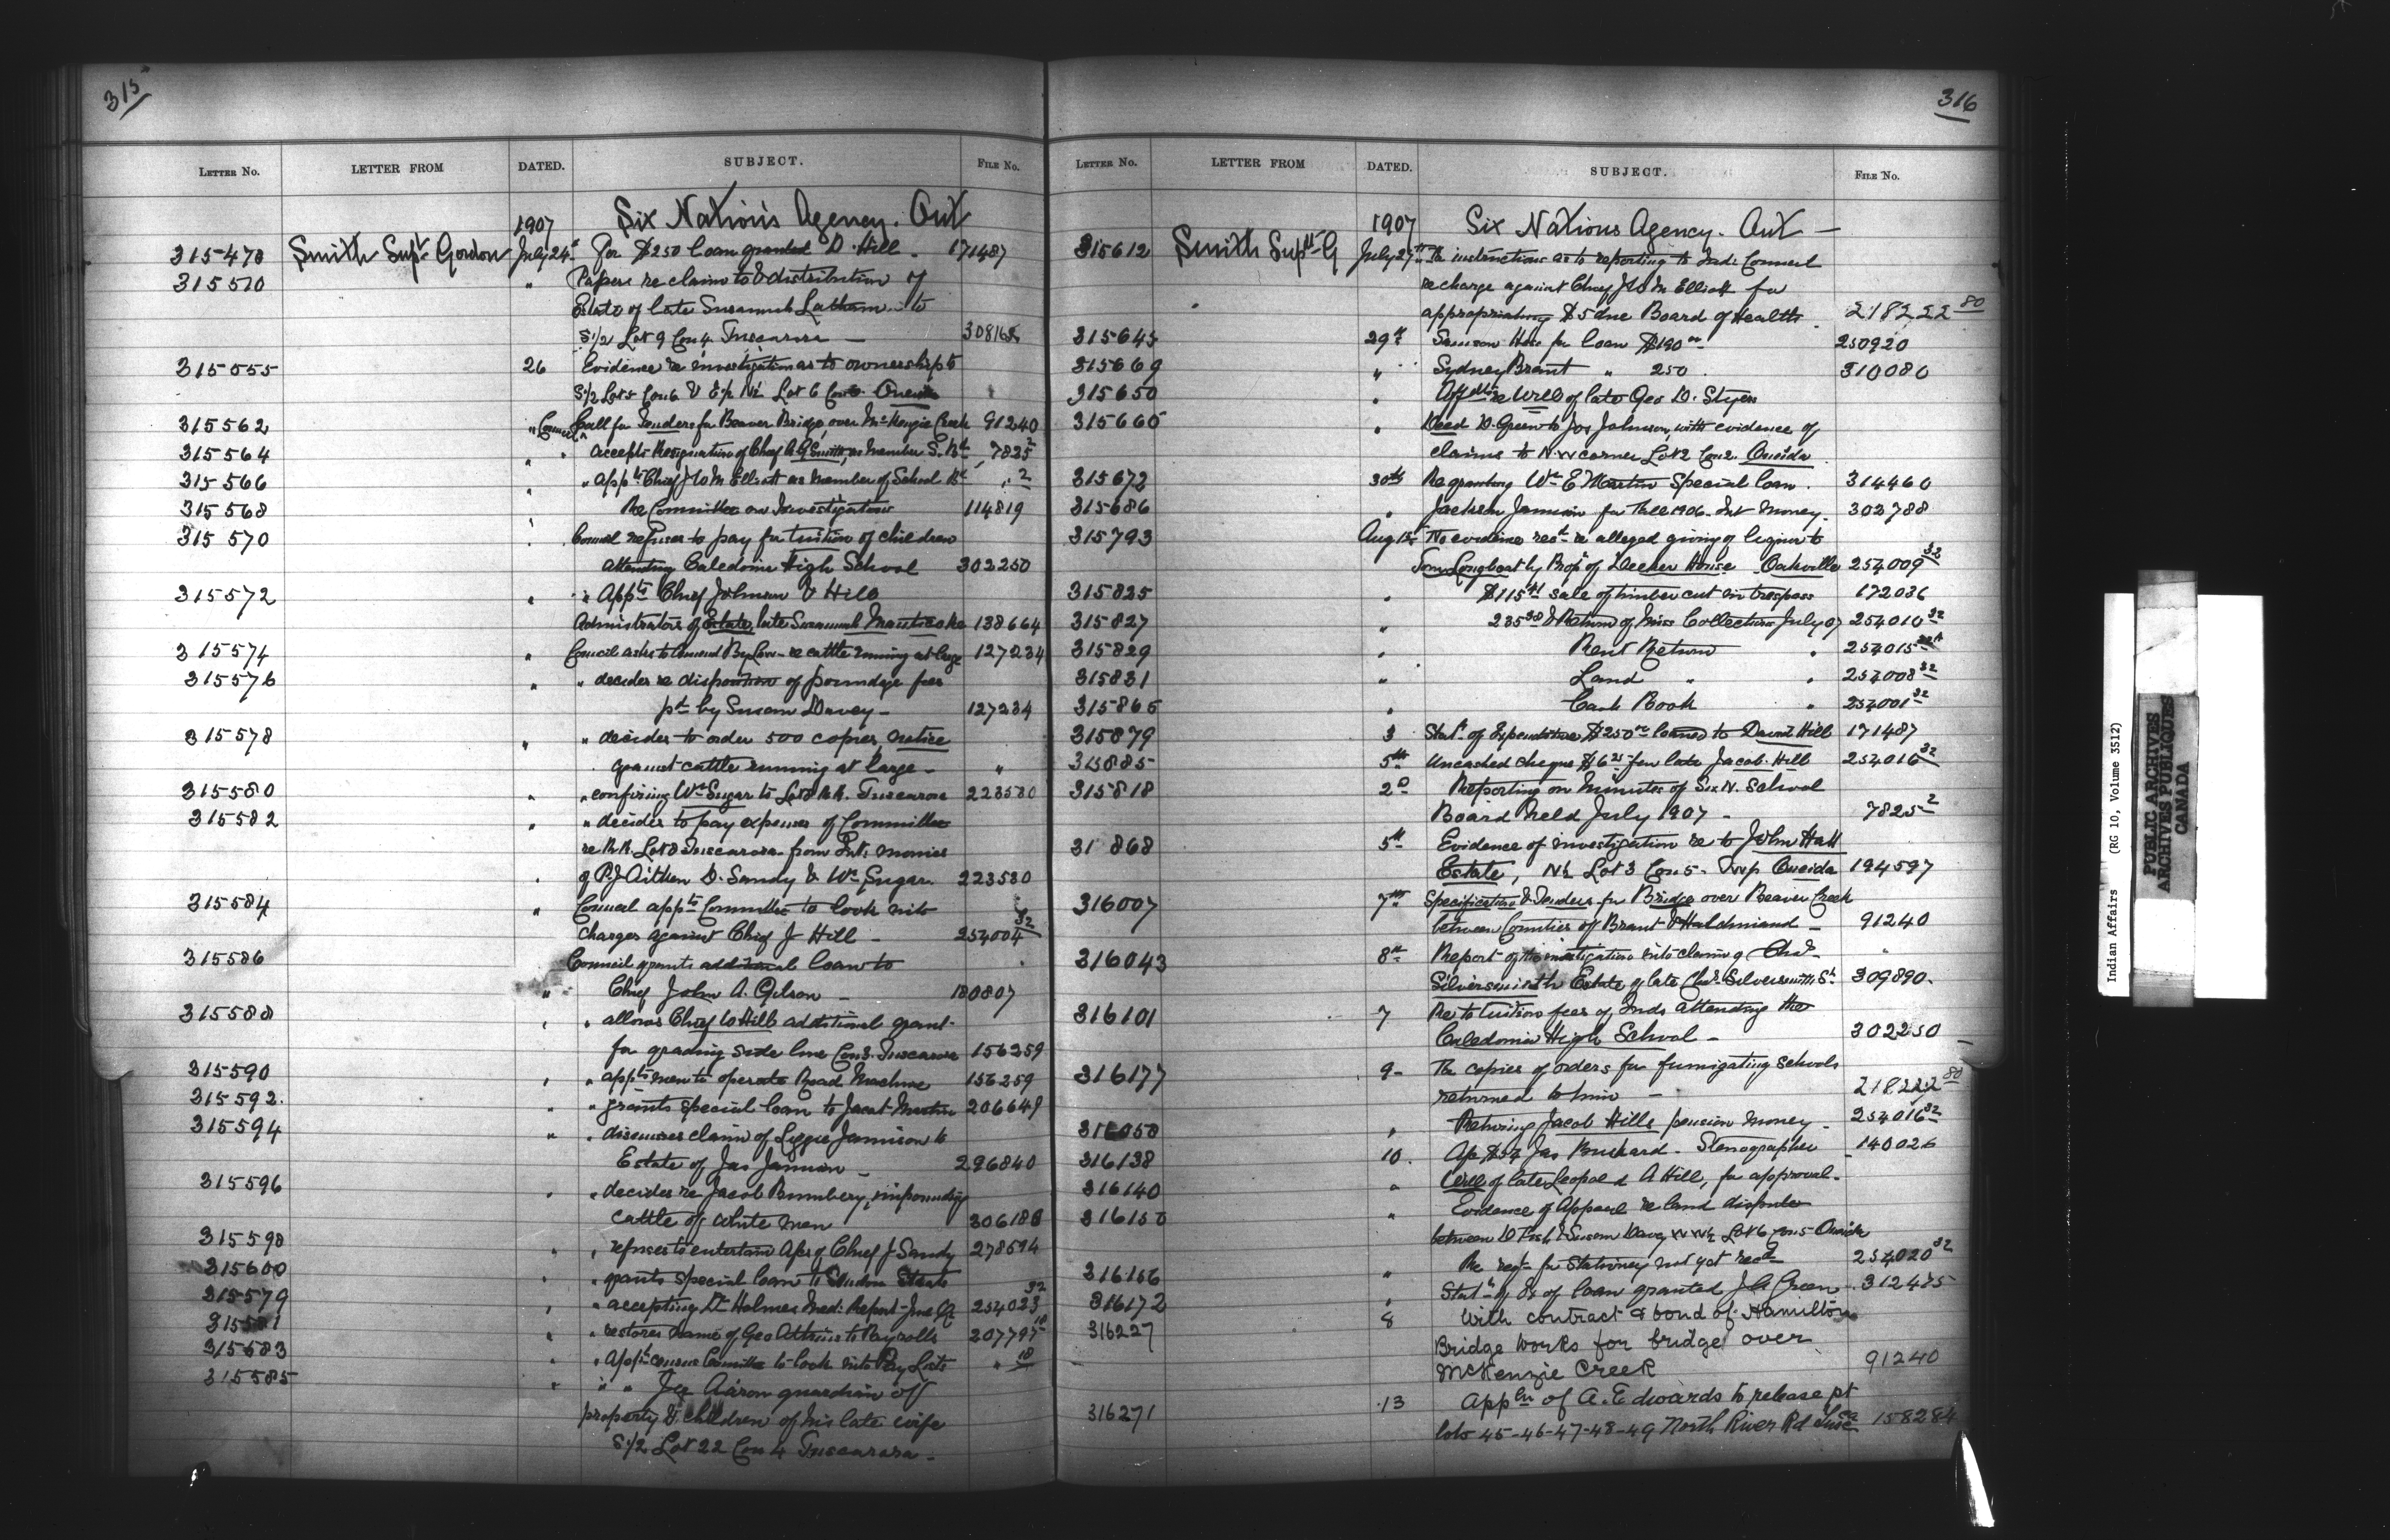 315
LETTER NO. LETTER FROM DATED. SUBJECT. FILE NO.
1907 Six Nations Agency. Ont
315478 Smith Supt Gordon July 24 For $250 loan granted D. Hill - 171487
315510 " Papers re claim to & distribution of
Estate of late Susannah Latham to
S1/2 Lot 9 Con 4 Tuscarora - 308165
315555 26 Evidence re investigation as to ownership to
S1/2 Lot 5 Con 6 & E1/2 N1/2 Lot 6 Con 6 Oneida
315562 " Council Call for Tenders for Beaver Bridge, over McKenzie Creek 91240
315564 " accepts Resignation of Chief A G Smith, as member S. Bd 7825 2
315566 " " appts Chief J W M Elliott as member of School Bd " 2
315568 Re Committee on Investigation 114819
315570 " Council refuses to pay for tuition of children
attending Caledonia High School 302250
315572 " " Appts Chief Johnson & Hill
Administrators of Estate, late Susannah Maracle 138664
315574 " Council asks to amend By Law re cattle running at large 127234
315576 " " decides re disposition of poundage fees
pd by Susan Davey - 127234
315578 " " decides to order 500 copies, notice
against cattle running at large - "
315580 " " confiring Wm Sugar to Lot 8 R.R. Tuscarora 223580
315582 " " decides to pay expenses of Committee
re R.R. Lot 8 Tuscarora from Int. monies
of P.J Aitken D. Sandy & Wm Sugar. 223580
315584 " Council appts Committee to look into
charges against Chief J Hill - 254004 32
315586 Council grants additional loan to
" Chief John A. Gibson - 180807
315588 " " allows Chief W Hill additional grant
for grading side line Con 3. Tuscarora 156259
315590 " " appts men to operate Road Machine 156259
315592. " " grants special loan to Jacob Martin 206649
315594 " " discusses claim of Lizzie Jamieson to
Estate of Jas Jamieson - 296840
315596 " " decides re Jacob Bumbery, impounding
cattle of white men 306188
315598 " " refuses to entertain Apln of Chief J Sandy 278594
315600 " " grants special loan to Staats
315579 " " accepting Dr Holmes Med: Report - June Qr 254023 32
315581 " " restores name of Geo Atkins to Payrolls 207797 10
315583 " " Appts census Committee to look into Pay Lists " 10
315585 " " " Jas Aaron guardian of
property & children of his late wife
S1/2 Lot 22 Con 4 Tuscarora -
316
LETTER NO. LETTER FROM DATED. SUBJECT. FILE NO.
1907 Six Nations Agency. Ont -
315612 Smith Supt G July 27th instructions as to reporting to Indn Council
re charge against Chief J W M Elliott for
appropriating $5 due Board of Health 218222 80
315645 29th Samson Hess for loan $190 00 250920
315669 " Sydney Brant " 250 310080
315650 " Affdvts re Will of late Geo D. Styers
315660 " Deed D. Green to Jos Johnson, with evidence of
claims to N.W corner Lot 2 Con 2. Oneida
315672 30th Re granting Wm E Martin Special loan. 314460
315686 " Jackson Jamieson for Fall 1906. Int Money. 302788
315793 Aug 1st No evidence recd re alleged giving of liquor to
Tom Longboat by Propr of Decker House Oakville 254009 32
315825 " $115 sale of timber cut in trespass 172036
315827 " 235 & Return of Misc Collections July 07 254010 32
315829 " Rent Return " 254015
315831 " Land " " 254008 32
315865 " Cash Book " 254001 32
315879 3 Statt of Expenditure $250 00 loaned to David Hill 171487
315885 5th Uncashed cheque $6 25 for late Jacob Hill 254016 32
315818 2d Reporting on Minutes of Six N. School
Board held July 1907 - 7825 2
31 868 5th Evidence of investigation re to John Hall
Estate, N1/2 Lot 3 Con 5 - Twp Oneida 194597
316007 7th Specification & Tenders for Bridge over Beaver Creek
between Counties of Brant & Haldimand - 91240
316043 8th Report of the investigation into claim of Chas
Silversmith Estate of late Chas Silversmith Sr 309890.
316101 7 Re to tuition fees of Inds attending the
Caledonia High School - 302250
316177 9 - The copies of orders for fumigating schools
returned to him - 218222 80
316050 " Returning Jacob Hills pension money - 254016 32
316138 10. Ap $54 Jas Bushard - Stenographer 140026
316140 " Will of late Leopold A Hill, for approval -
316150 " Evidence of Appeal re land dispute
between D Fish & Susan Davey N W1/2 Lot 6 Con 5 Oneida
316156 " Re reqt for stationery not yet recd 254020 32
316172 " Statt of Ex of loan granted J. Green - 312485
316227 8 With contract & bond of Hamilton
Bridge Works for bridge over
McKenzie Creek 91240
316271 13 Appln of A. Edwards to release pt
lots 45-46-47-48-49 North River Rd Tusca 158284
Indian Affairs (RG 10, Volume 3512)
PUBLIC ARCHIVES
ARCHIVES PUBLIQUES
CANADA